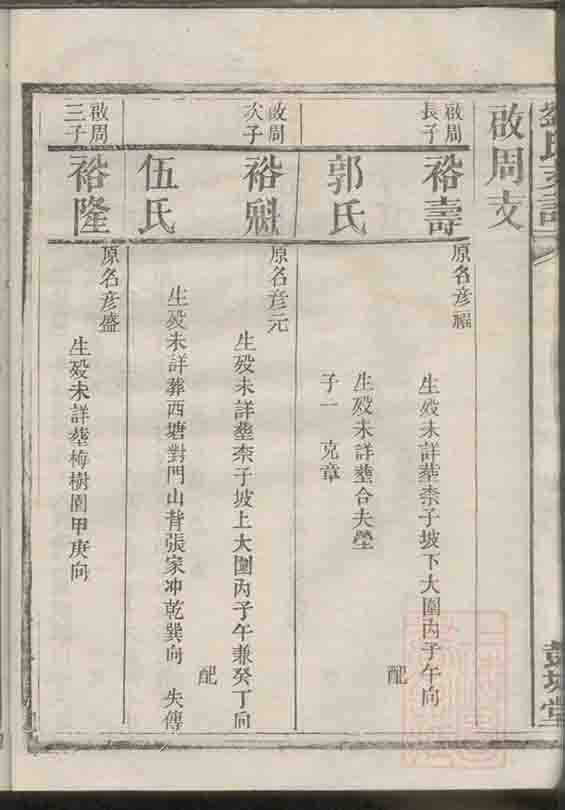 劉氏支譜
彭城堂
啟周支
啟周長子
裕壽
原名彥耀
生殁未詳塟柰子坡下大圍內子午向
配
郭氏
生殁未詳塟合夫塋
子一 克章
啟周次子
裕魁
原名彥元
生殁未詳塟柰子坡上大圍丙子午兼癸丁向
配
伍氏
生殁未詳葬西塘對門山背張家冲乾巽向 失傳
啟周三子
裕隆
原名彥盛
生殁未詳塟梅樹園甲庚向